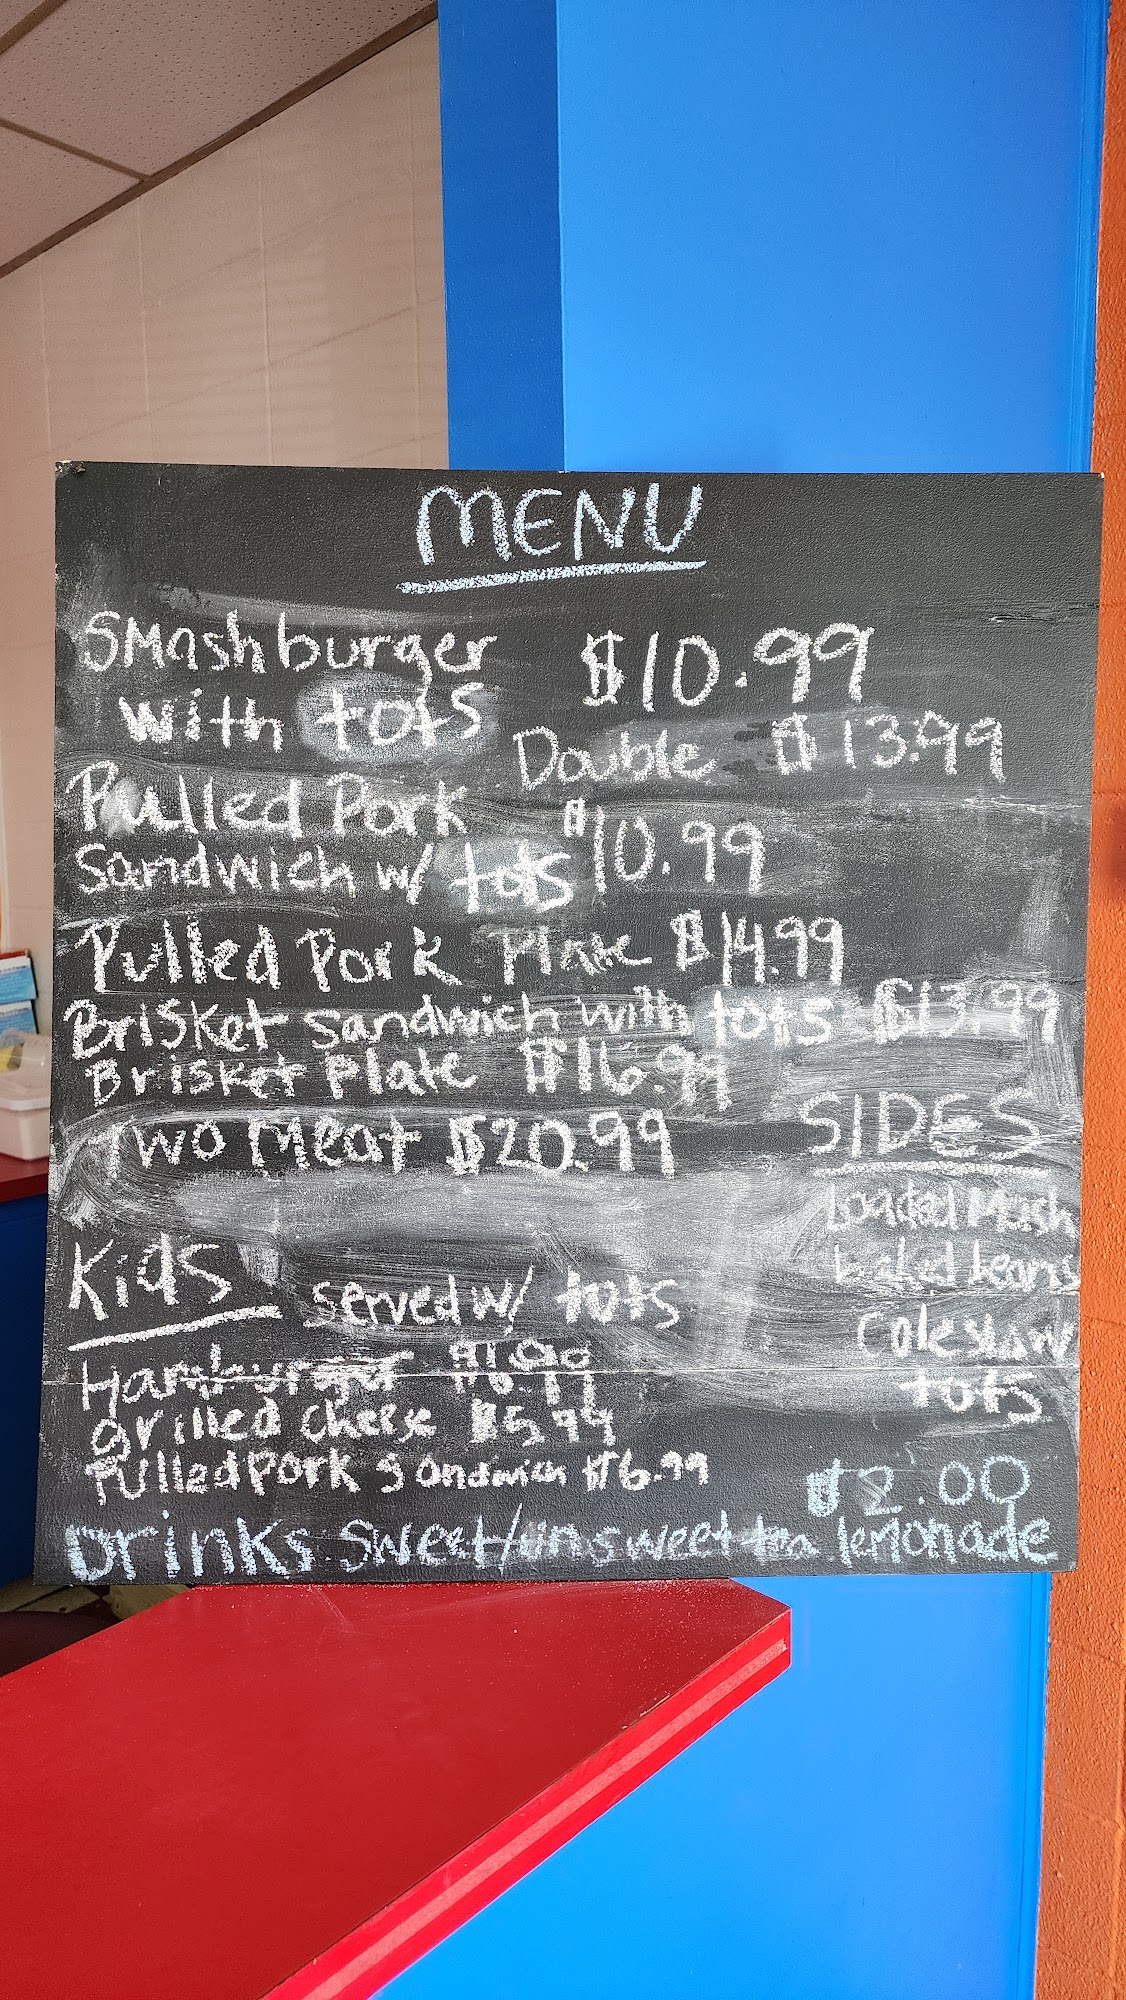 MENU
Smashburger $10.99
with tots
Double $13.99
Pulled Pork
Sandwich w/ tots $10.99
Pulled Pork Plate $14.99
Brisket sandwich with tots $13.99
Brisket Plate $16.99
Two Meat $20.99
SIDES
Loaded Mash
baked beans
Coleslaw
tots
Kids served w/ tots
Hamburger $6.99
Grilled Cheese $5.99
Pulled Pork Sandwich $6.99
$2.00
Drinks: Sweet/unsweet tea lemonade